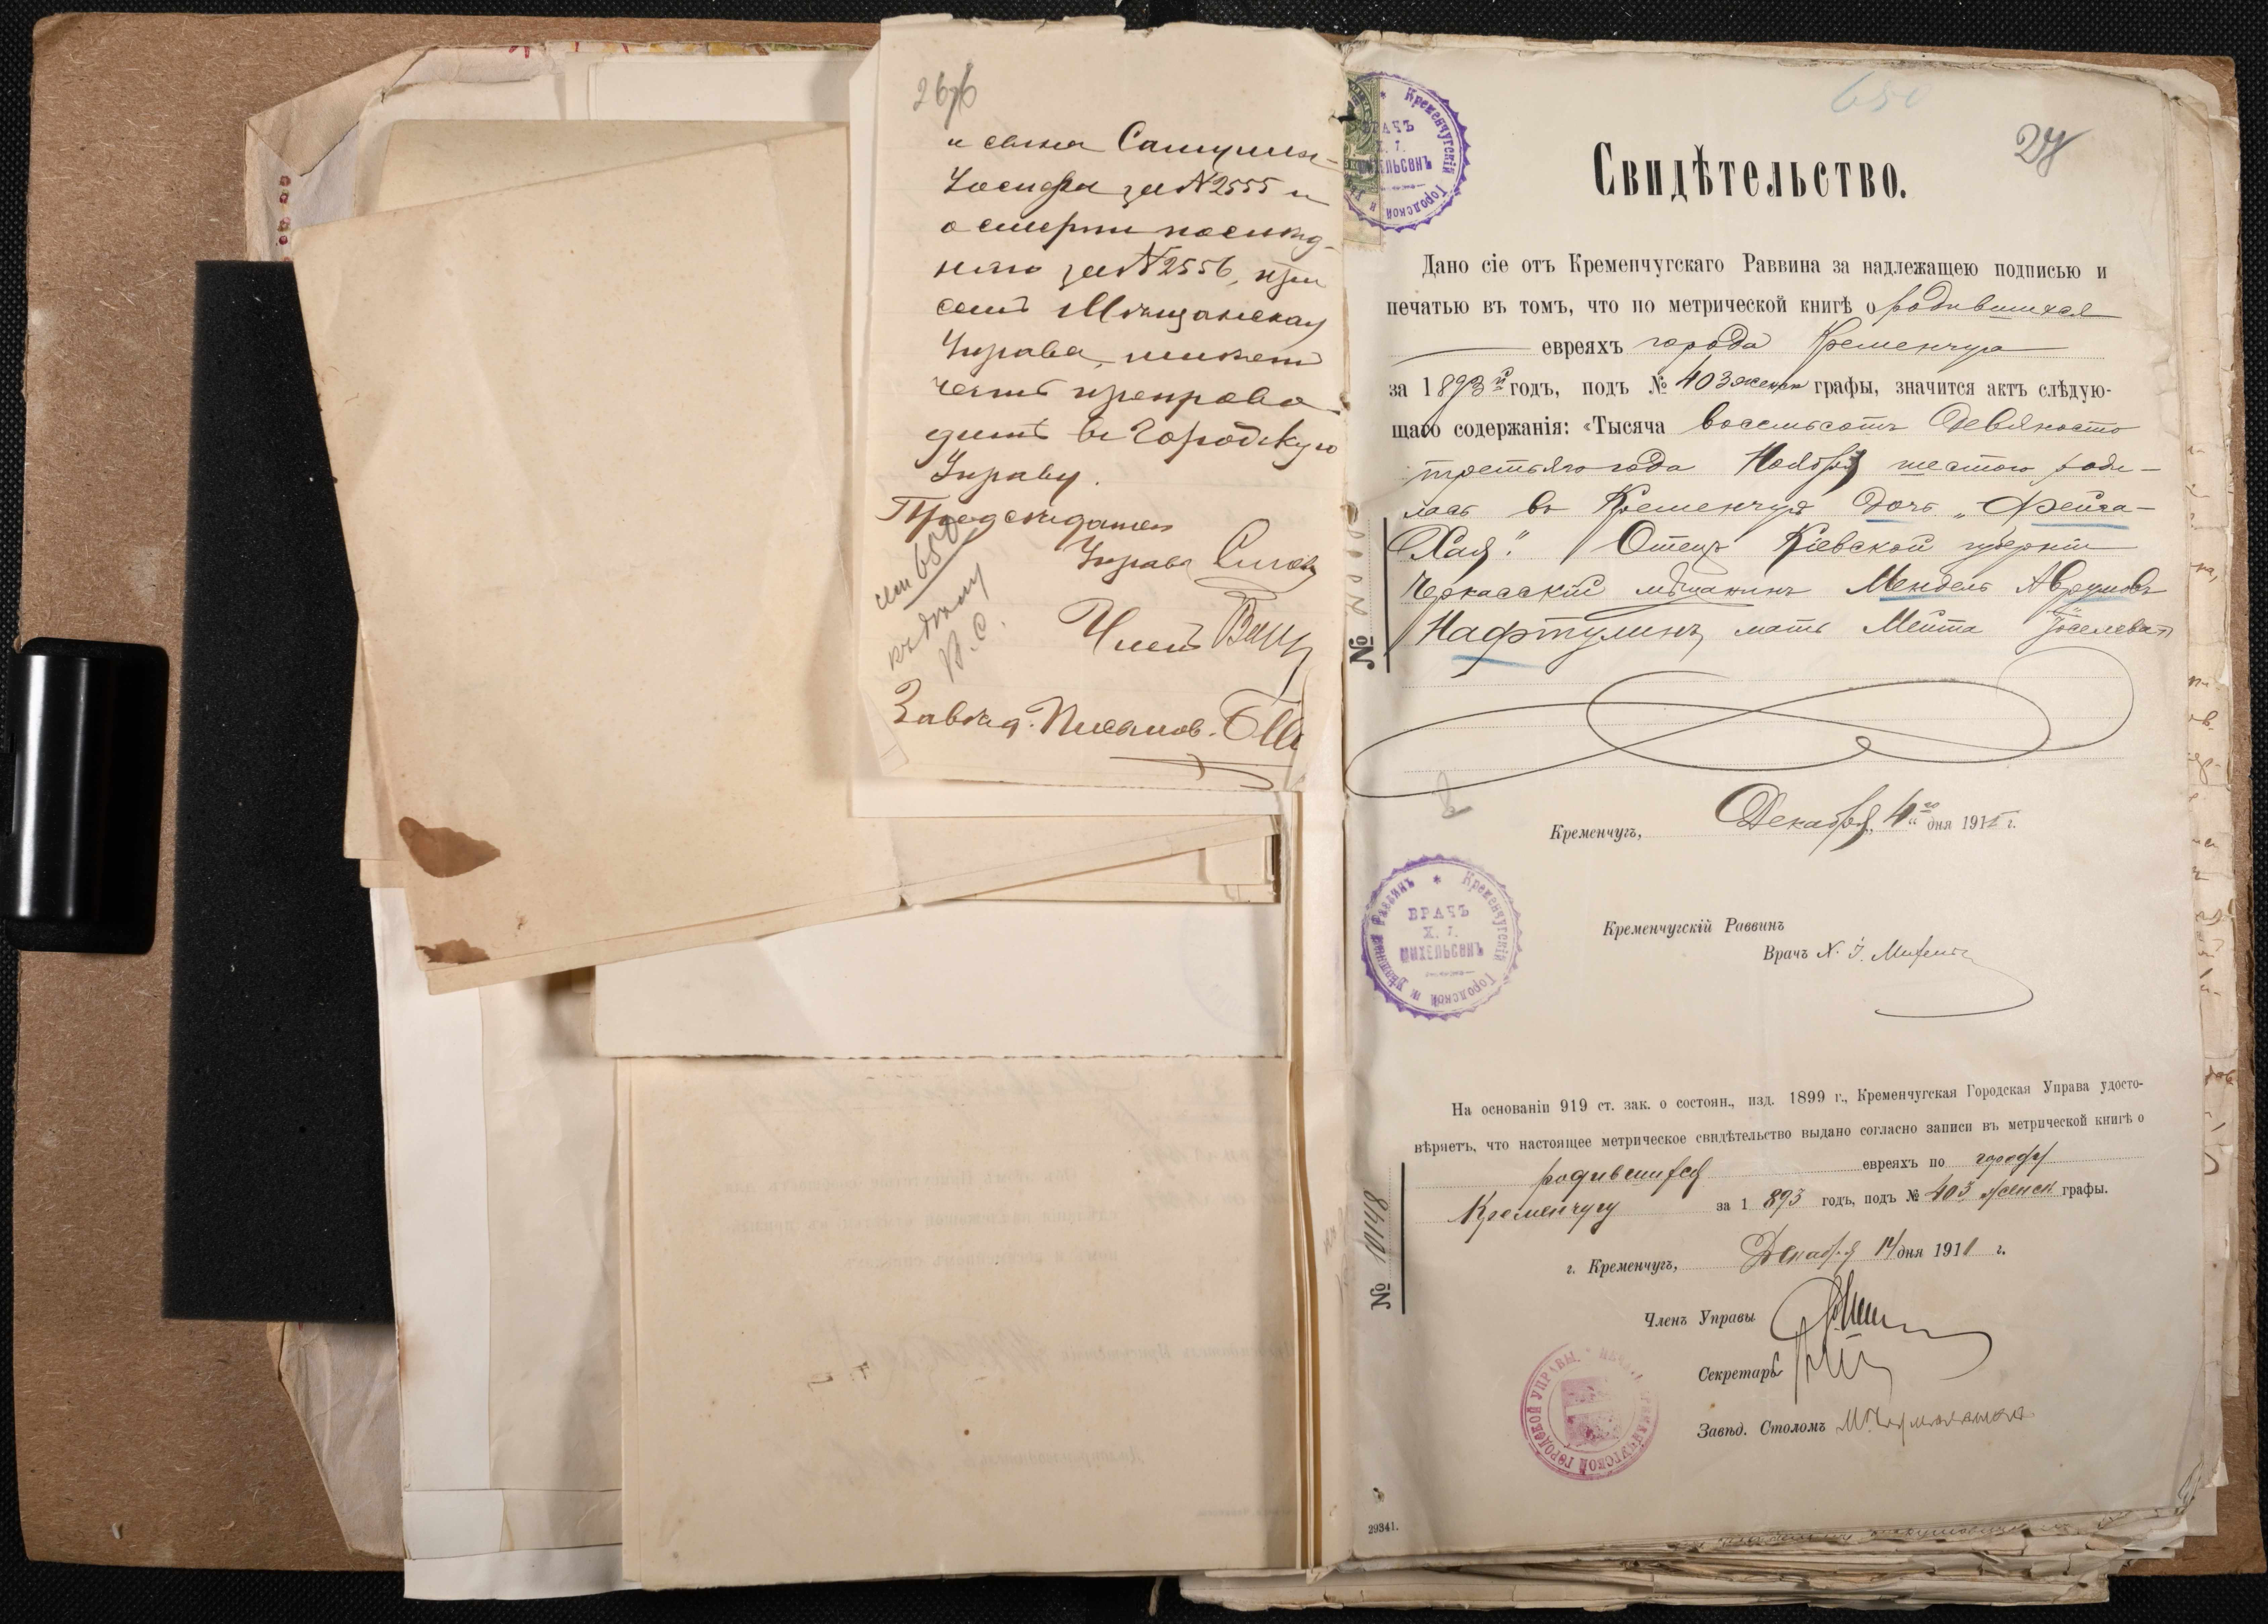 26об
и сына Самуила-
Іосифа за №2555 и
о смерти послѣд-
няго за №2556, при
семъ Мѣщанская
Управа, имѣетъ
честь препрово-
дить въ Городскую
Управу.
Предсѣдатель
Управы
Членъ
Завѣд. Письмов.
см 650
къ дѣлу
650
27
Свидѣтельство.
Дано сіе отъ Кременчугскаго Раввина за надлежащею подписью и
печатью въ томъ, что по метрической книгѣ о родившихся
евреяхъ города Кременчуга
за 1893й годъ, подъ № 403 женск графы, значится актъ слѣдую-
щаго содержанія: «Тысяча восемьсотъ Девяносто
третьяго года Ноября шестого роди-
лась въ Кременчугѣ дочь „Фейга-
Хая". Отецъ Кіевской губерніи
Черкасскій мѣщанинъ Мендель Аврумовъ
Нафтулинъ, мать Мейта Іоселева"
№
Кременчугъ, Декабря 4го дня 1911 г.
Кременчугскій Городской и Уѣздный Раввинъ
ВРАЧЪ
Х. І.
МИХЕЛЬСОНЪ
Кременчугскій Раввинъ
Врачъ Х. І. Михельсонъ
На основаніи 919 ст. зак. о состоян., изд. 1899 г., Кременчугская Городская Управа удосто-
вѣряетъ, что настоящее метрическое свидѣтельство выдано согласно записи въ метрической книгѣ о
родившихся евреяхъ по городу
Кременчугу за 1893 годъ, подъ № 403 женск графы.
№ 10148
г. Кременчугъ, Декабря 14 дня 1911 г.
Членъ Управы
Секретарь
Завѣд. Столомъ
ПЕЧАТЬ КРЕМЕНЧУГСКОЙ ГОРОДСКОЙ УПРАВЫ.
29341.